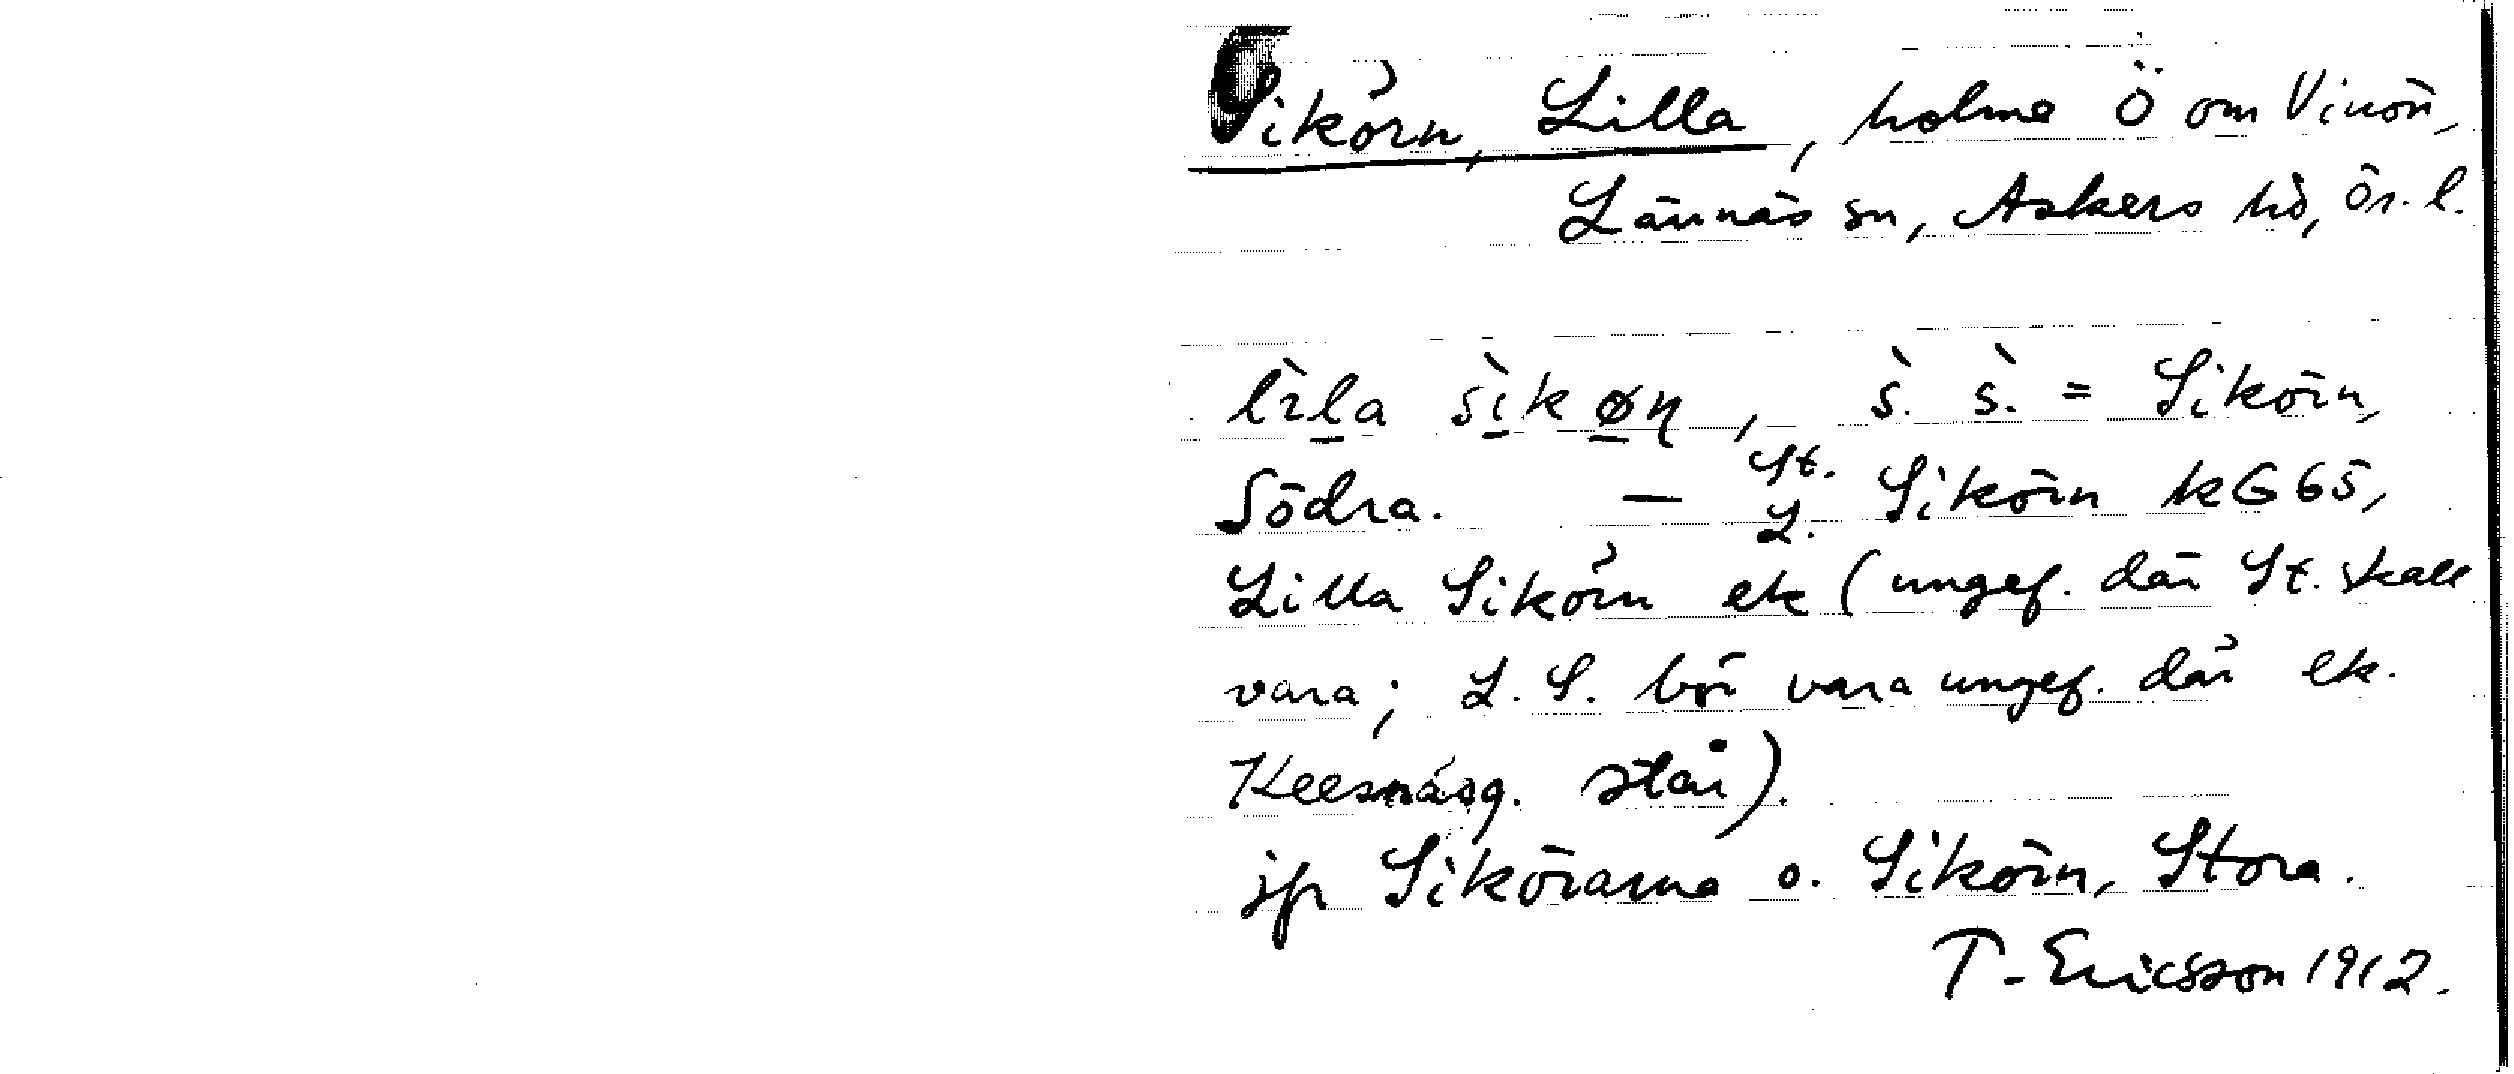 Sikörn, Lilla, holme Ö om Vinön,
Lännäs sn, Askers hd, Ör. l.
lìla sìkøn, s̀. s̀. = Sikörn,
Södra. — St. L. Sikörn kG65,
Lilla Sikörn ek (ungef. där St. skall
vara; L. S. bör vara ungef. där ek.
står).
jfr Sikörarna o. Sikörn, Stora.
T. Ericsson 1912.